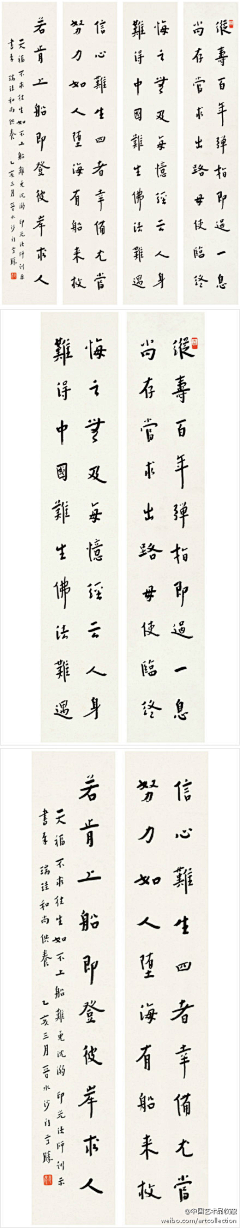 縱壽百年彈指即過一息
尚存當求出路毋使臨終
悔之無及每憶經云人身
難得中國難生佛法難遇
信心難生四者幸備尤當
努力如人墮海有船來救
若肯上船即登彼岸求人
天福不求往生如不上船難免沉溺 印光法師訓示
書奉 和尚供養 乙亥三月 晉水沙門
縱壽百年彈指即過一息
尚存當求出路毋使臨終
悔之無及每憶經云人身
難得中國難生佛法難遇
信心難生四者幸備尤當
努力如人墮海有船來救
若肯上船即登彼岸求人
天福不求往生如不上船難免沉溺 印光法師訓示
書奉 和尚供養 乙亥三月 晉水沙門
@中国艺术品收藏
weibo.com/artcollection